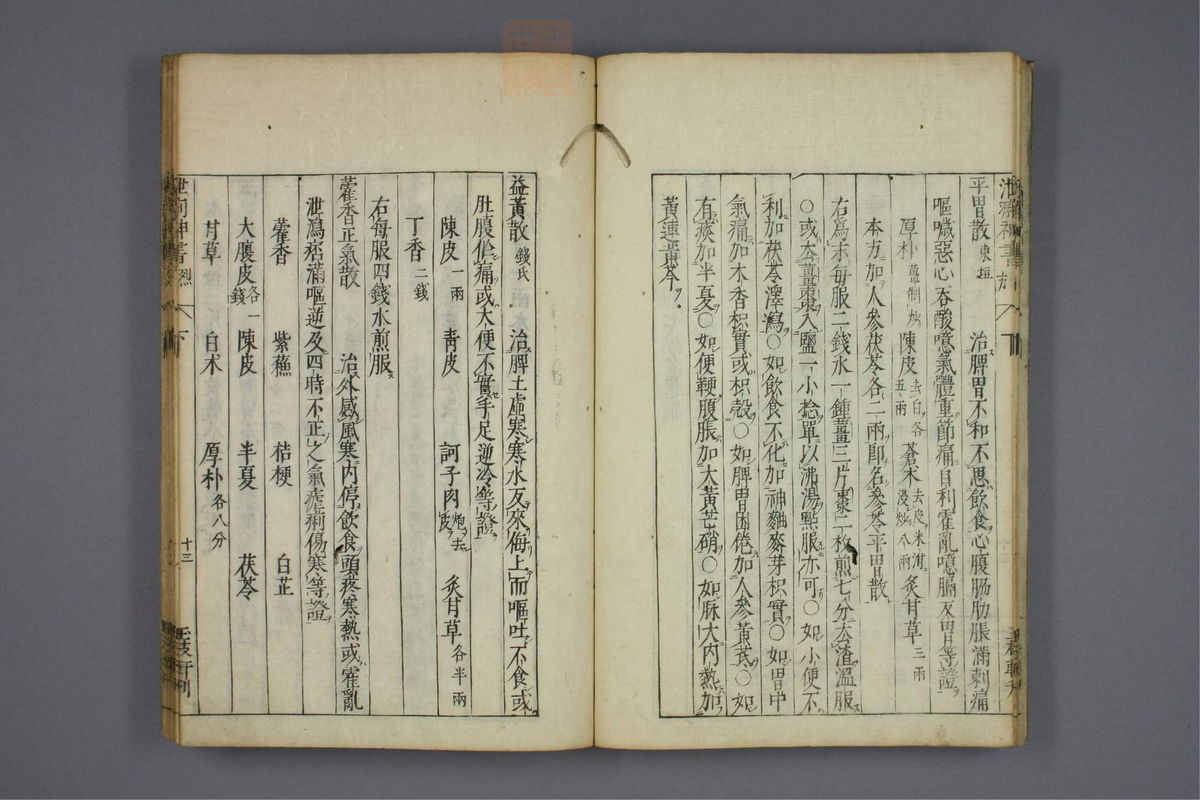 平胃散東垣 治脾胃不和不思飲食心腹脇肋脹滿刺痛
嘔噦惡心吞酸噫氣體重節痛自利霍亂噫膈反胃等證
厚朴薑制炒 陳皮去白各五兩 蒼术去皮米泔浸炒八兩 炙甘草三兩
本方加人參茯苓各二兩卽名參苓平胃散
右爲末每服二錢水一鍾薑三片棗二枚煎七分去渣溫服
○或去薑棗入鹽一小捻單以沸湯點服亦可○如小便不
利加茯苓澤瀉○如飲食不化加神麯麥芽枳實○如胃中
氣痛加木香枳實或枳殼○如脾胃困倦加人參黃芪○如
有痰加半夏○如便鞕腹脹加大黃芒硝○如脉大內熱加
黃連黃芩
益黃散錢氏 治脾土虛寒寒水反來侮上而嘔吐不食或
肚腹作痛或大便不實手足逆冷等證
陳皮一兩 青皮 訶子肉炮去皮 炙甘草各半兩
丁香二錢
右每服四錢水煎服
藿香正氣散 治外感風寒內停飲食頭疼寒熱或霍亂
泄瀉痞滿嘔逆及四時不正之氣瘧痢傷寒等證
藿香 紫蘇 桔梗 白芷
大腹皮各一錢 陳皮 半夏 茯苓
甘草 白术 厚朴各八分
下 十三